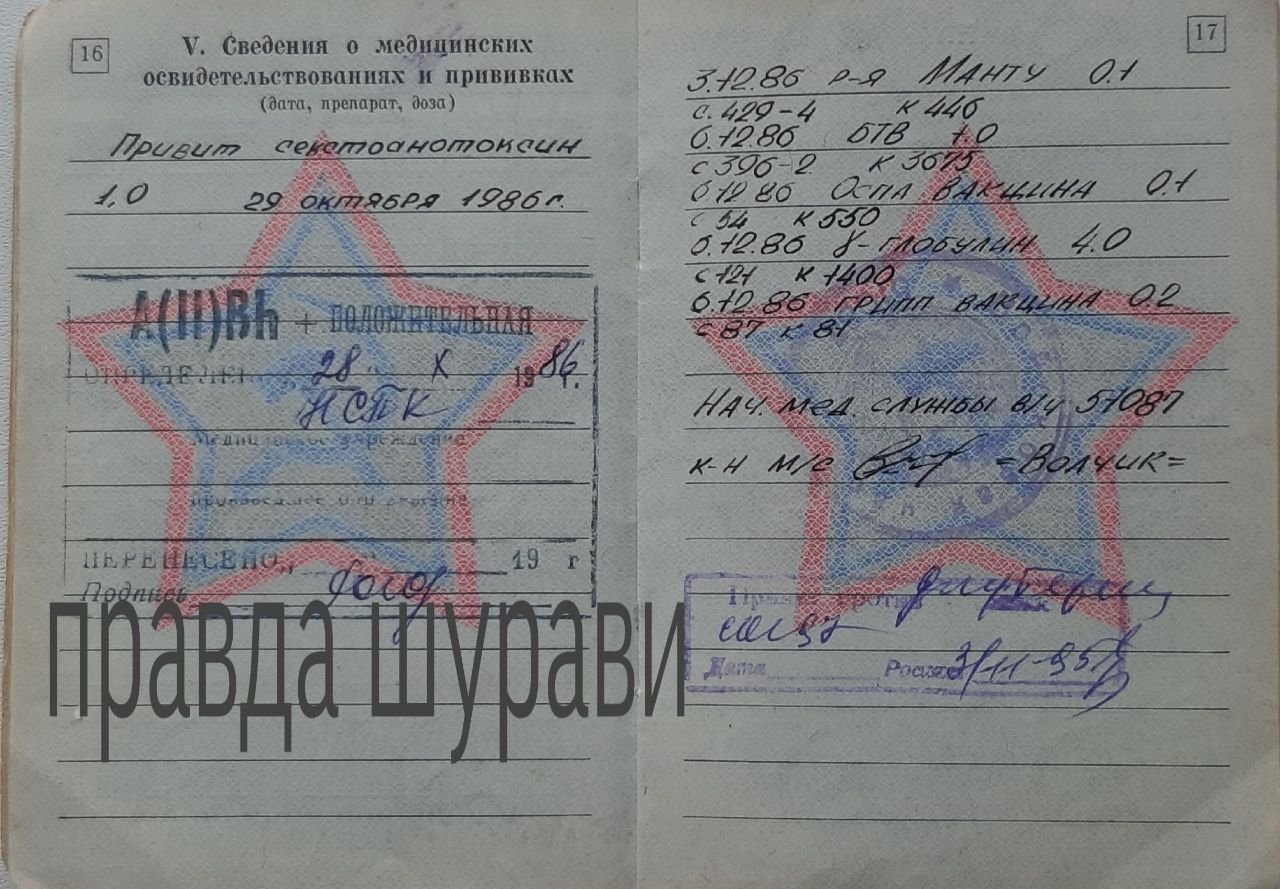 16
V. Сведения о медицинских
освидетельствованиях и прививках
(дата, препарат, доза)
Привит секстоанотоксин
1,0 29 октября 1986 г.
А(II)Rh + ПОЛОЖИТЕЛЬНАЯ
ОПРЕДЕЛЕН „28" X 1986 г.
НСПК
Медицинское учреждение
ПЕРЕНЕСЕНО „ " 19 г
Подпись
правда шурави
17
3.12.86 р-я Манту 0.1
с. 429-4 к 446
6.12.86 БТВ 1.0
с 396-2 к 3675
6.12.86 Оспа вакцина 0.1
с 54 к 550
6.12.86 γ-глобулин 4.0
с 121 к 1400
6.12.86 грипп вакцина 0.2
с 87 к 81
Нач. мед. службы в/ч 51087
к-н м/с =Волчик=
дифтерии
Дата